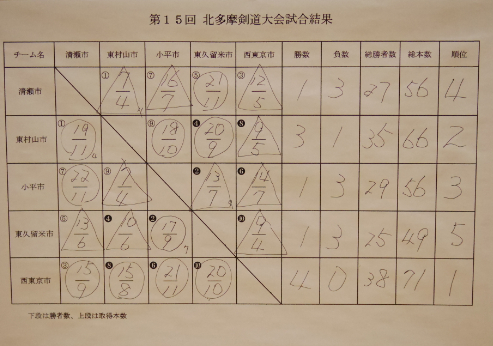 第15回 北多摩剣道大会試合結果
チーム名 清瀬市 東村山市 小平市 東久留米市 西東京市 勝数 負数 総勝者数 総本数 順位
清瀬市 ① 4 ⑦ 7 ⑤ 21/11 ③ 5 1 3 27 56 4
東村山市 ① 19/11 ⑨ 18/10 ❹ 20/9 ❽ 9/5 3 1 35 66 2
小平市 ⑦ 22/11 ⑨ 4 ❷ 13/7 ❻ 14/7 1 3 29 56 3
東久留米市 ⑤ 13/6 ❹ 10/6 ❷ 17/9 ❿ 9/4 1 3 25 49 5
西東京市 ③ 15/9 ❽ 15/8 ❻ 21/11 ❿ 20/10 4 0 38 71 1
下段は勝者数、上段は取得本数